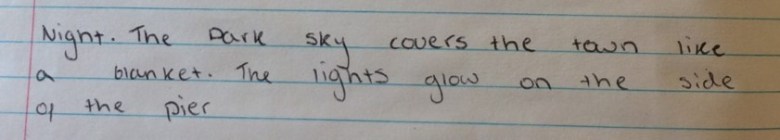 Night. The Dark sky covers the town like
a blanket. The lights glow on the side
of the pier